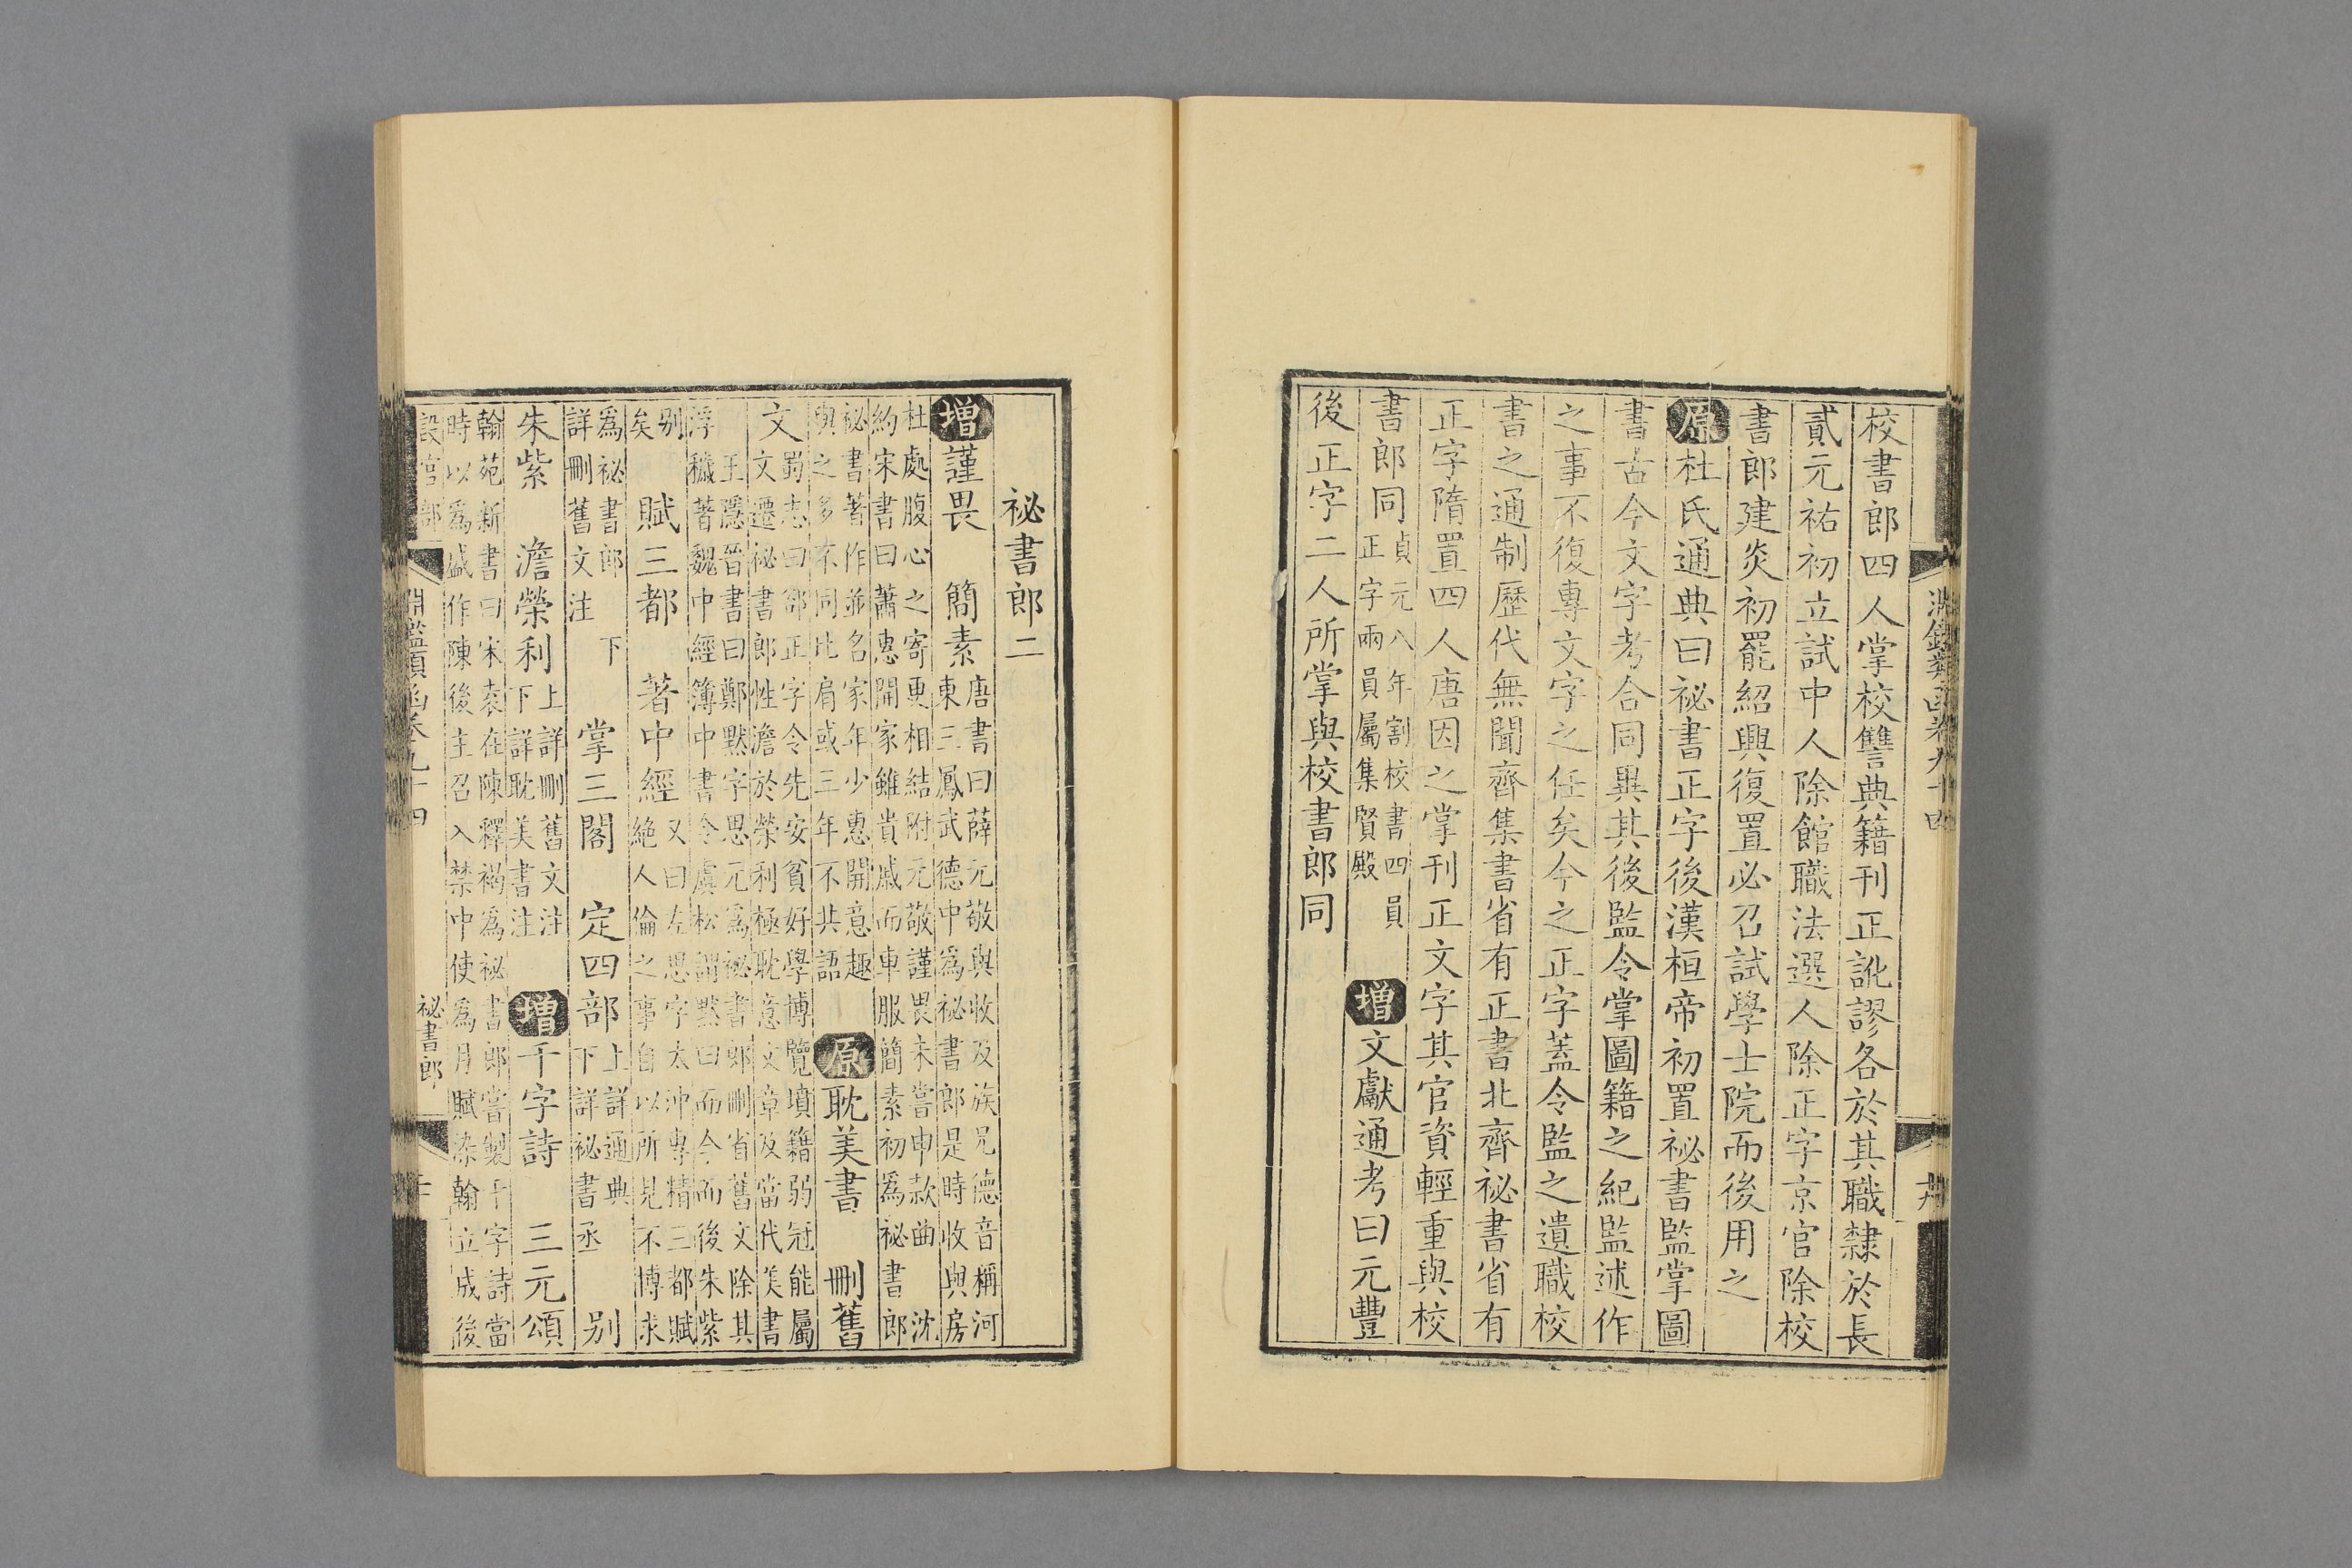 校書郎四人掌校讐典籍刊正訛謬各於其職隸於長
貳元祐初立試中人除館職法選人除正字京官除校
書郎建炎初罷紹興復置必召試學士院而後用之
原杜氏通典曰祕書正字後漢桓帝初置祕書監掌圖
書古今文字考合同異其後監令掌圖籍之紀監述作
之事不復專文字之任矣今之正字蓋令監之遺職校
書之通制歷代無聞齊集書省有正書北齊祕書省有
正字隋置四人唐因之掌刊正文字其官資輕重與校
書郎同
貞元八年割校書四員
正字兩員屬集賢殿
增文獻通考曰元豐
後正字二人所掌與校書郎同
祕書郎二
增謹畏　簡素
唐書曰薛元敬與收及族兄德音稱河
東三鳳武德中為祕書郎是時收與房
杜處腹心之寄更相結附元敬謹畏未嘗申款曲　沈
約宋書曰蕭惠開家雖貴戚而車服簡素初為祕書郎
祕書著作並名家年少惠開意趣
與之多不同比肩或三年不共語
原耽美書　刪舊
文
蜀志曰郤正字令先安貧好學博覽墳籍弱冠能屬
文遷祕書郎性澹於榮利極耽意文章及當代美書
王隱晉書曰鄭默字思元為祕書郎刪省舊文除其
浮穢著魏中經簿中書令虞松謂默曰而今而後朱紫
别
矣
賦三都　著中經
又曰左思字太沖專精三都賦
絶人倫之事自以所見不博求
為祕書郎　下
詳刪舊文注
掌三閣　定四部
上詳通典
下詳祕書丞
别
朱紫　澹榮利
上詳刪舊文注
下詳耽美書注
增千字詩　三元頌
翰苑新書曰宋袁在陳釋褐為祕書郎嘗製千字詩當
時以為盛作陳後主召入禁中使為月賦染翰立成後
設官部
淵鑑類函卷九十四
祕書郎